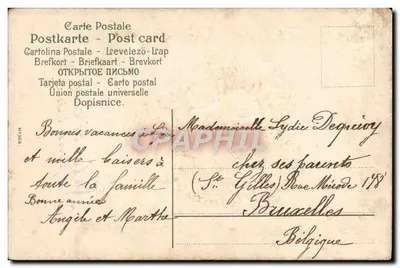 Carte Postale
Postkarte - Post card
Cartolina Postale - Levelező-Lap
Brefkort - Briefkaart - Brevkort
ОТКРЫТОЕ ПИСЬМО
Tarjeta postal - Carto postal
Union postale universelle
Dopisnice.
Bonnes vacances à
et mille baisers à
toute la famille
Bonne année
Angèle et Marthe
Mademoiselle Lydie
chez ses parents
(St Gilles) Rue Mérode 178
Bruxelles
Belgique
CPAPHIL